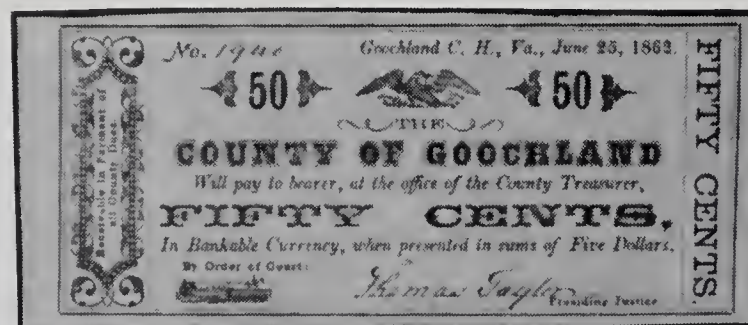 No. 1940 Goochland C. H., Va., June 25, 1862.
50 50
THE
COUNTY OF GOOCHLAND
Will pay to bearer, at the office of the County Treasurer,
FIFTY CENTS,
In Bankable Currency, when presented in sums of Five Dollars.
By Order of Court:
Thomas Taylor
Presiding Justice
Receivable in Payment of
all County Dues.
FIFTY CENTS.